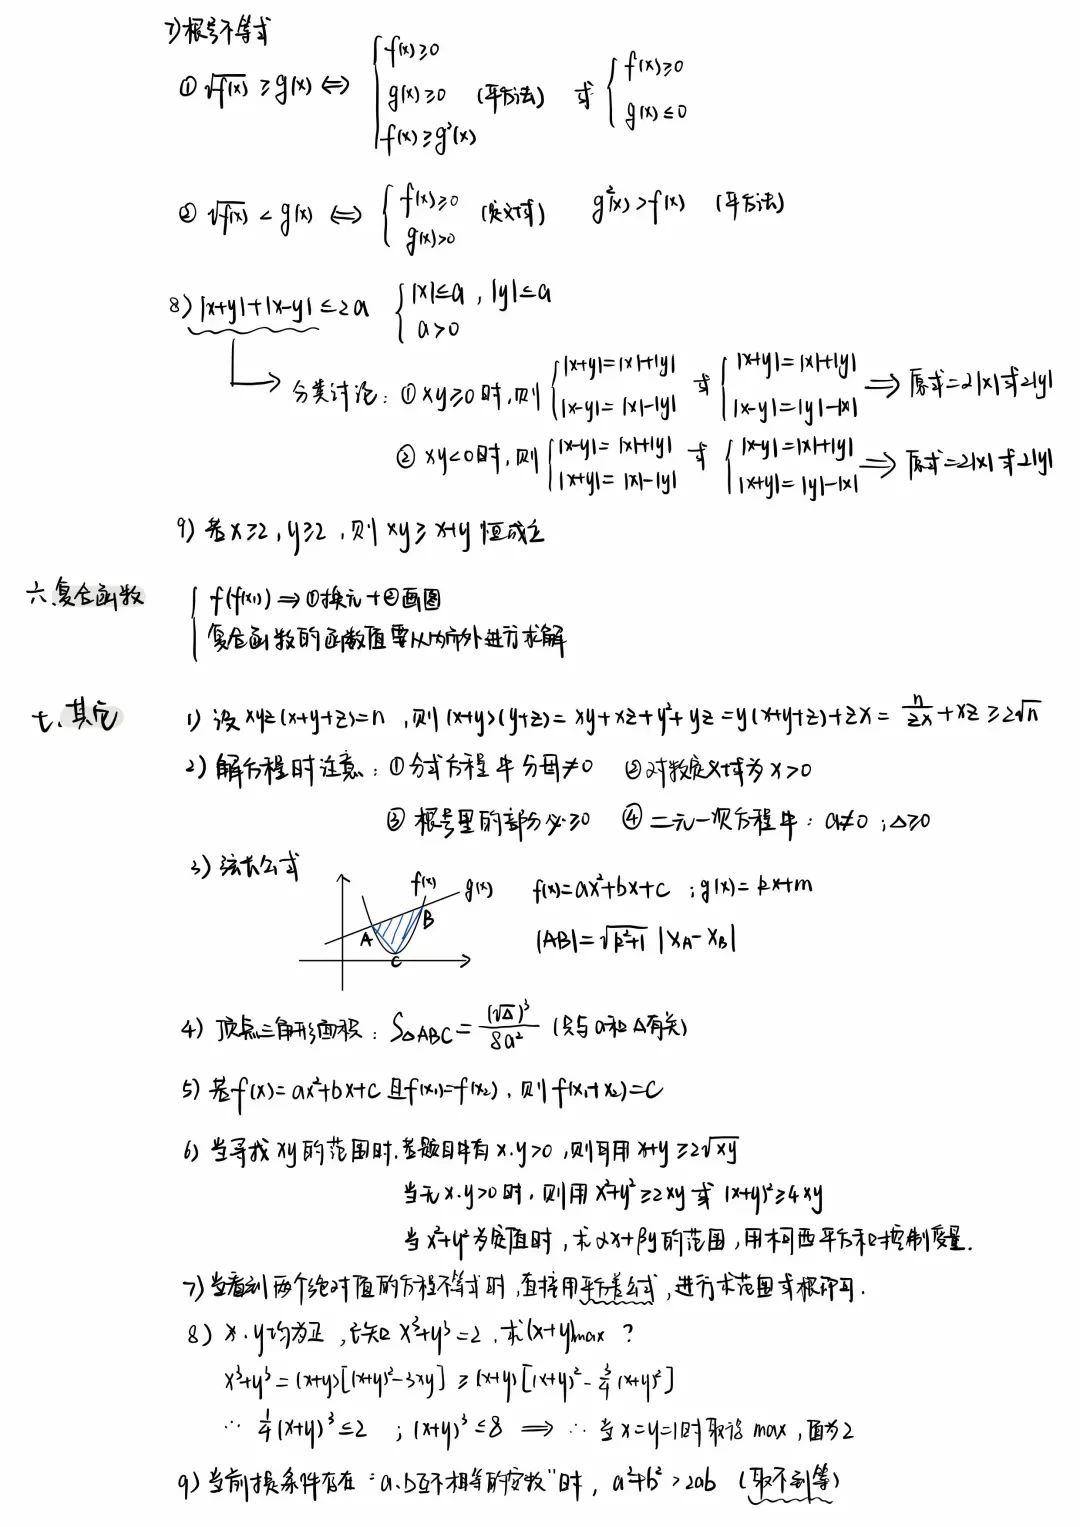 7) 根号不等式
① √f(x) ≥ g(x) ⟺ { f(x)≥0
g(x)≥0 (平方法)
f(x)≥g²(x)
或 { f(x)≥0
g(x)≤0
② √f(x) < g(x) ⟺ { f(x)≥0
g(x)>0
(定义域) g²(x)>f(x) (平方法)
8) |x+y|+|x-y|≤2a { |x|≤a , |y|≤a
a>0
分类讨论: ① xy≥0时,则 { |x+y|=|x|+|y|
|x-y|=|x|-|y|
或 { |x+y|=|x|+|y|
|x-y|=|y|-|x|
⟹ 原式=2|x|或2|y|
② xy<0时,则 { |x-y|=|x|+|y|
|x+y|=|x|-|y|
或 { |x-y|=|x|+|y|
|x+y|=|y|-|x|
⟹ 原式=2|x|或2|y|
9) 若x≥2,y≥2,则xy≥x+y恒成立
六.复合函数 { f(f(x)) ⟹ ①换元+②画图
复合函数的函数值要从内向外进行求解
七.其它 1) 设xyz(x+y+z)=n ,则(x+y)(y+z)=xy+xz+y²+yz=y(x+y+z)+zx= n/zx +xz≥2√n
2) 解方程时注意: ①分式方程中分母≠0 ②对数定义域为x>0
③ 根号里的部分必≥0 ④ 二元一次方程中: a≠0 ;Δ≥0
3) 弦长公式
f(x) g(x) f(x)=ax²+bx+c ;g(x)=kx+m
A B C
|AB|=√k²+1 |xA-xB|
4) 顶点三角形面积: S△ABC= (√Δ)³/8a² (只与a和Δ有关)
5) 若f(x)=ax²+bx+c且f(x₁)=f(x₂),则f(x₁+x₂)=c
6) 当寻找xy的范围时.若题目中有x.y>0 ,则可用x+y≥2√xy
当无x.y>0时,则用x²+y²≥2xy或(x+y)²≥4xy
当x²+y²为定值时,求αx+βy的范围,用柯西平方和控制变量.
7) 当看到两个绝对值的方程不等式时,直接用平方差公式,进行求范围或根即可.
8) x.y均为正,已知x³+y³=2.求(x+y)max ?
x³+y³=(x+y)[(x+y)²-3xy]≥(x+y)[(x+y)²-¾(x+y)²]
∵ ¼(x+y)³≤2 ; (x+y)³≤8 ⟹ ∴ 当x=y=1时取得max,值为2
9) 当前提条件存在“a.b互不相等的实数”时, a²+b²>2ab (取不到等)